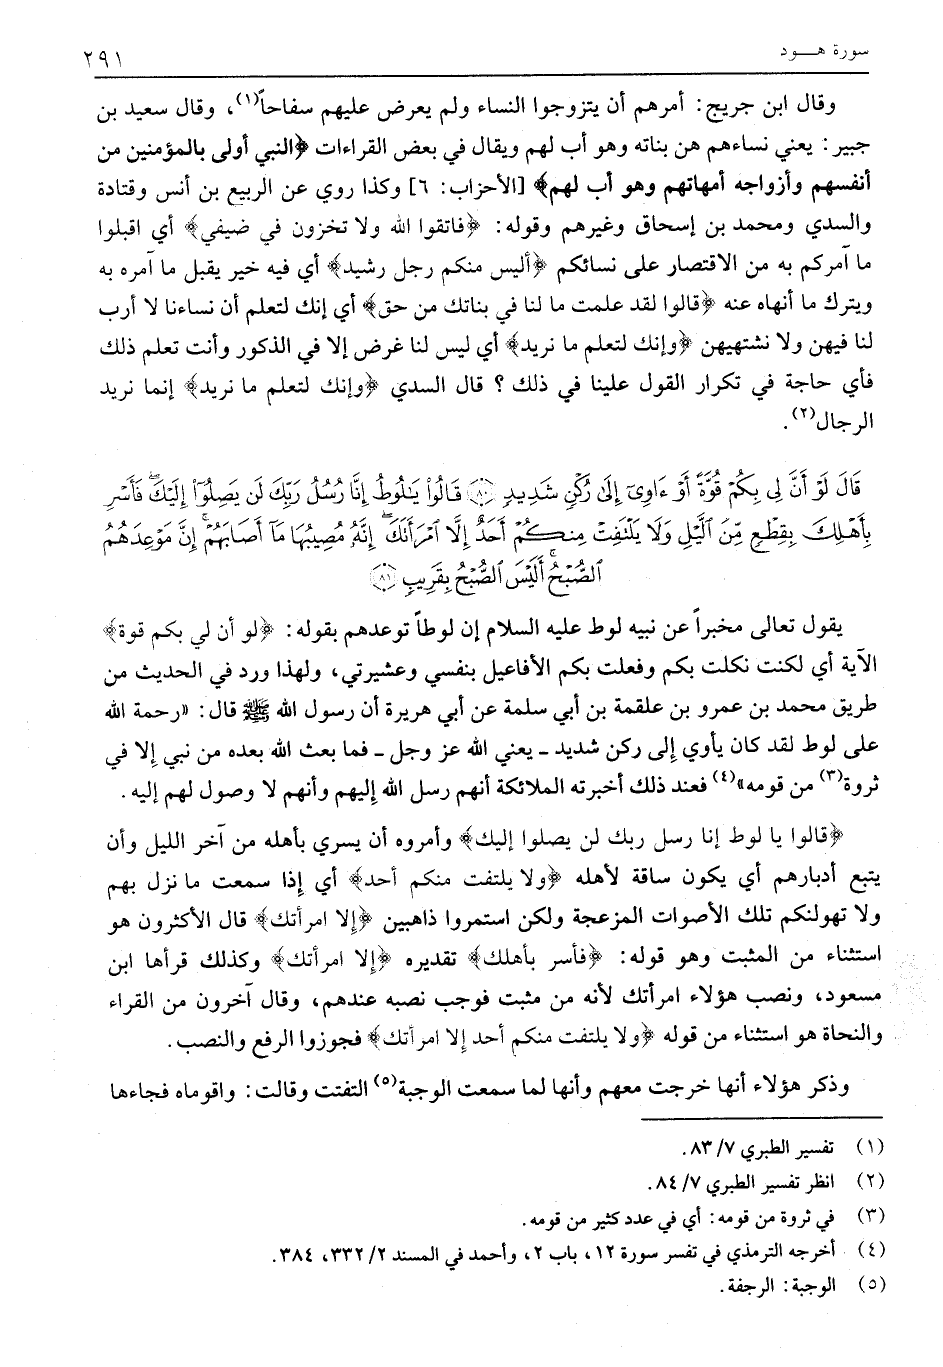 سورة هـــود
٢٩١
وقال ابن جريج: أمرهم أن يتزوجوا النساء ولم يعرض عليهم سفاحاً(١)، وقال سعيد بن
جبير: يعني نساءهم هن بناته وهو أب لهم ويقال في بعض القراءات ﴿النبي أولى بالمؤمنين من
أنفسهم وأزواجه أمهاتهم وهو أب لهم﴾ [الأحزاب: ٦] وكذا روي عن الربيع بن أنس وقتادة
والسدي ومحمد بن إسحاق وغيرهم وقوله: ﴿فاتقوا الله ولا تخزون في ضيفي﴾ أي اقبلوا
ما آمركم به من الاقتصار على نسائكم ﴿أليس منكم رجل رشيد﴾ أي فيه خير يقبل ما آمره به
ويترك ما أنهاه عنه ﴿قالوا لقد علمت ما لنا في بناتك من حق﴾ أي إنك لتعلم أن نساءنا لا أرب
لنا فيهن ولا نشتهيهن ﴿وإنك لتعلم ما نريد﴾ أي ليس لنا غرض إلا في الذكور وأنت تعلم ذلك
فأي حاجة في تكرار القول علينا في ذلك ؟ قال السدي ﴿وإنك لتعلم ما نريد﴾ إنما نريد
الرجال(٢).
قَالَ لَوْ أَنَّ لِى بِكُمْ قُوَّةً أَوْ ءَاوِىٓ إِلَىٰ رُكْنٍ شَدِيدٍ ﴿٨٠﴾ قَالُوا۟ يَـٰلُوطُ إِنَّا رُسُلُ رَبِّكَ لَن يَصِلُوٓا۟ إِلَيْكَ ۖ فَأَسْرِ
بِأَهْلِكَ بِقِطْعٍ مِّنَ ٱلَّيْلِ وَلَا يَلْتَفِتْ مِنكُمْ أَحَدٌ إِلَّا ٱمْرَأَتَكَ ۖ إِنَّهُۥ مُصِيبُهَا مَآ أَصَابَهُمْ ۚ إِنَّ مَوْعِدَهُمُ
ٱلصُّبْحُ ۚ أَلَيْسَ ٱلصُّبْحُ بِقَرِيبٍ ﴿٨١﴾
يقول تعالى مخبراً عن نبيه لوط عليه السلام إن لوطاً توعدهم بقوله: ﴿لو أن لي بكم قوة﴾
الآية أي لكنت نكلت بكم وفعلت بكم الأفاعيل بنفسي وعشيرتي، ولهذا ورد في الحديث من
طريق محمد بن عمرو بن علقمة بن أبي سلمة عن أبي هريرة أن رسول الله ﷺ قال: «رحمة الله
على لوط لقد كان يأوي إلى ركن شديد ـ يعني الله عز وجل ـ فما بعث الله بعده من نبي إلا في
ثروة(٣) من قومه»(٤) فعند ذلك أخبرته الملائكة أنهم رسل الله إليهم وأنهم لا وصول لهم إليه.
﴿قالوا يا لوط إنا رسل ربك لن يصلوا إليك﴾ وأمروه أن يسري بأهله من آخر الليل وأن
يتبع أدبارهم أي يكون ساقة لأهله ﴿ولا يلتفت منكم أحد﴾ أي إذا سمعت ما نزل بهم
ولا تهولنكم تلك الأصوات المزعجة ولكن استمروا ذاهبين ﴿إلا امرأتك﴾ قال الأكثرون هو
استثناء من المثبت وهو قوله: ﴿فأسر بأهلك﴾ تقديره ﴿إلا امرأتك﴾ وكذلك قرأها ابن
مسعود، ونصب هؤلاء امرأتك لأنه من مثبت فوجب نصبه عندهم، وقال آخرون من القراء
والنحاة هو استثناء من قوله ﴿ولا يلتفت منكم أحد إلا امرأتك﴾ فجوزوا الرفع والنصب.
وذكر هؤلاء أنها خرجت معهم وأنها لما سمعت الوجبة(٥) التفتت وقالت: واقوماه فجاءها
(١) تفسير الطبري ٧/ ٨٣.
(٢) انظر تفسير الطبري ٧/ ٨٤.
(٣) في ثروة من قومه: أي في عدد كثير من قومه.
(٤) أخرجه الترمذي في تفسر سورة ١٢، باب ٢، وأحمد في المسند ٢/ ٣٣٢، ٣٨٤.
(٥) الوجبة: الرجفة.